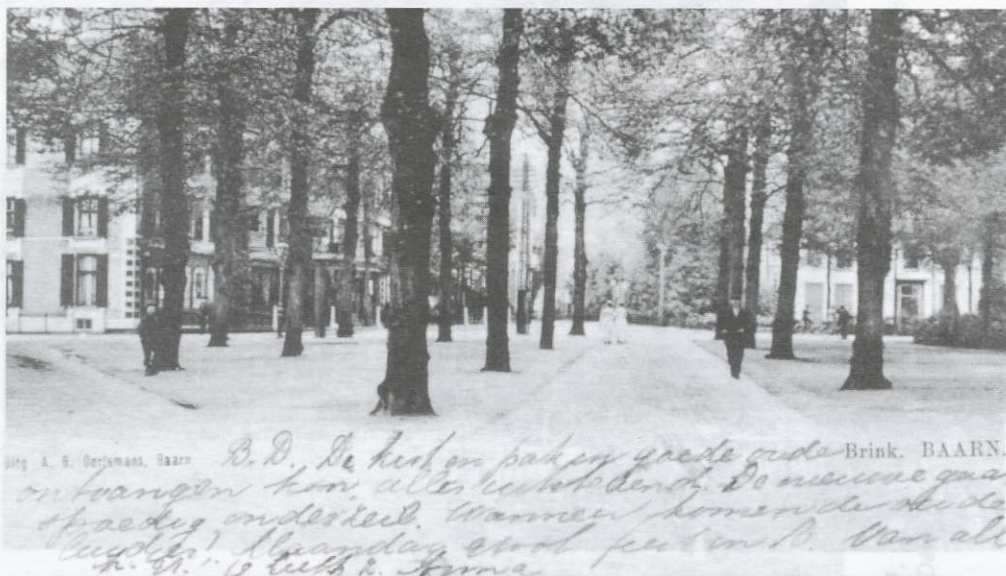 Uitg A. B. Oerlemans, Baarn
Brink. BAARN.
B. D. De kist en pak in goede oude
ontvangen hoor, alles uitstekend. De nieuwe gaa
spoedig onder zeil. Wanneer komen de oude
luidjes? Maandag groot feest in B. Van all
h. gr.